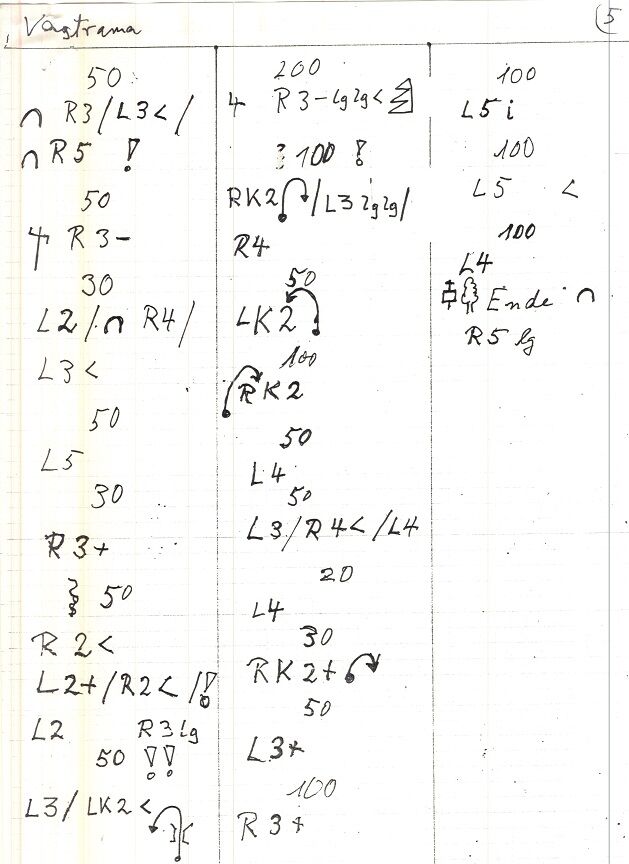 Vägtrama
5
50
∩ R3/L3</
∩ R5 !
50
R3-
30
L2/∩ R4/
L3<
50
L5
30
R3+
50
R2<
L2+/R2</!
L2 R3lg
50 !!
L3/LK2<
200
R3-lglg<
100 !
RK2 /L3lglg/
R4
50
LK2
100
RK2
50
L4
50
L3/R4</L4
20
L4
30
RK2+
50
L3+
100
R3+
100
L5i
100
L5 <
100
L4
Ende ∩
R5 lg